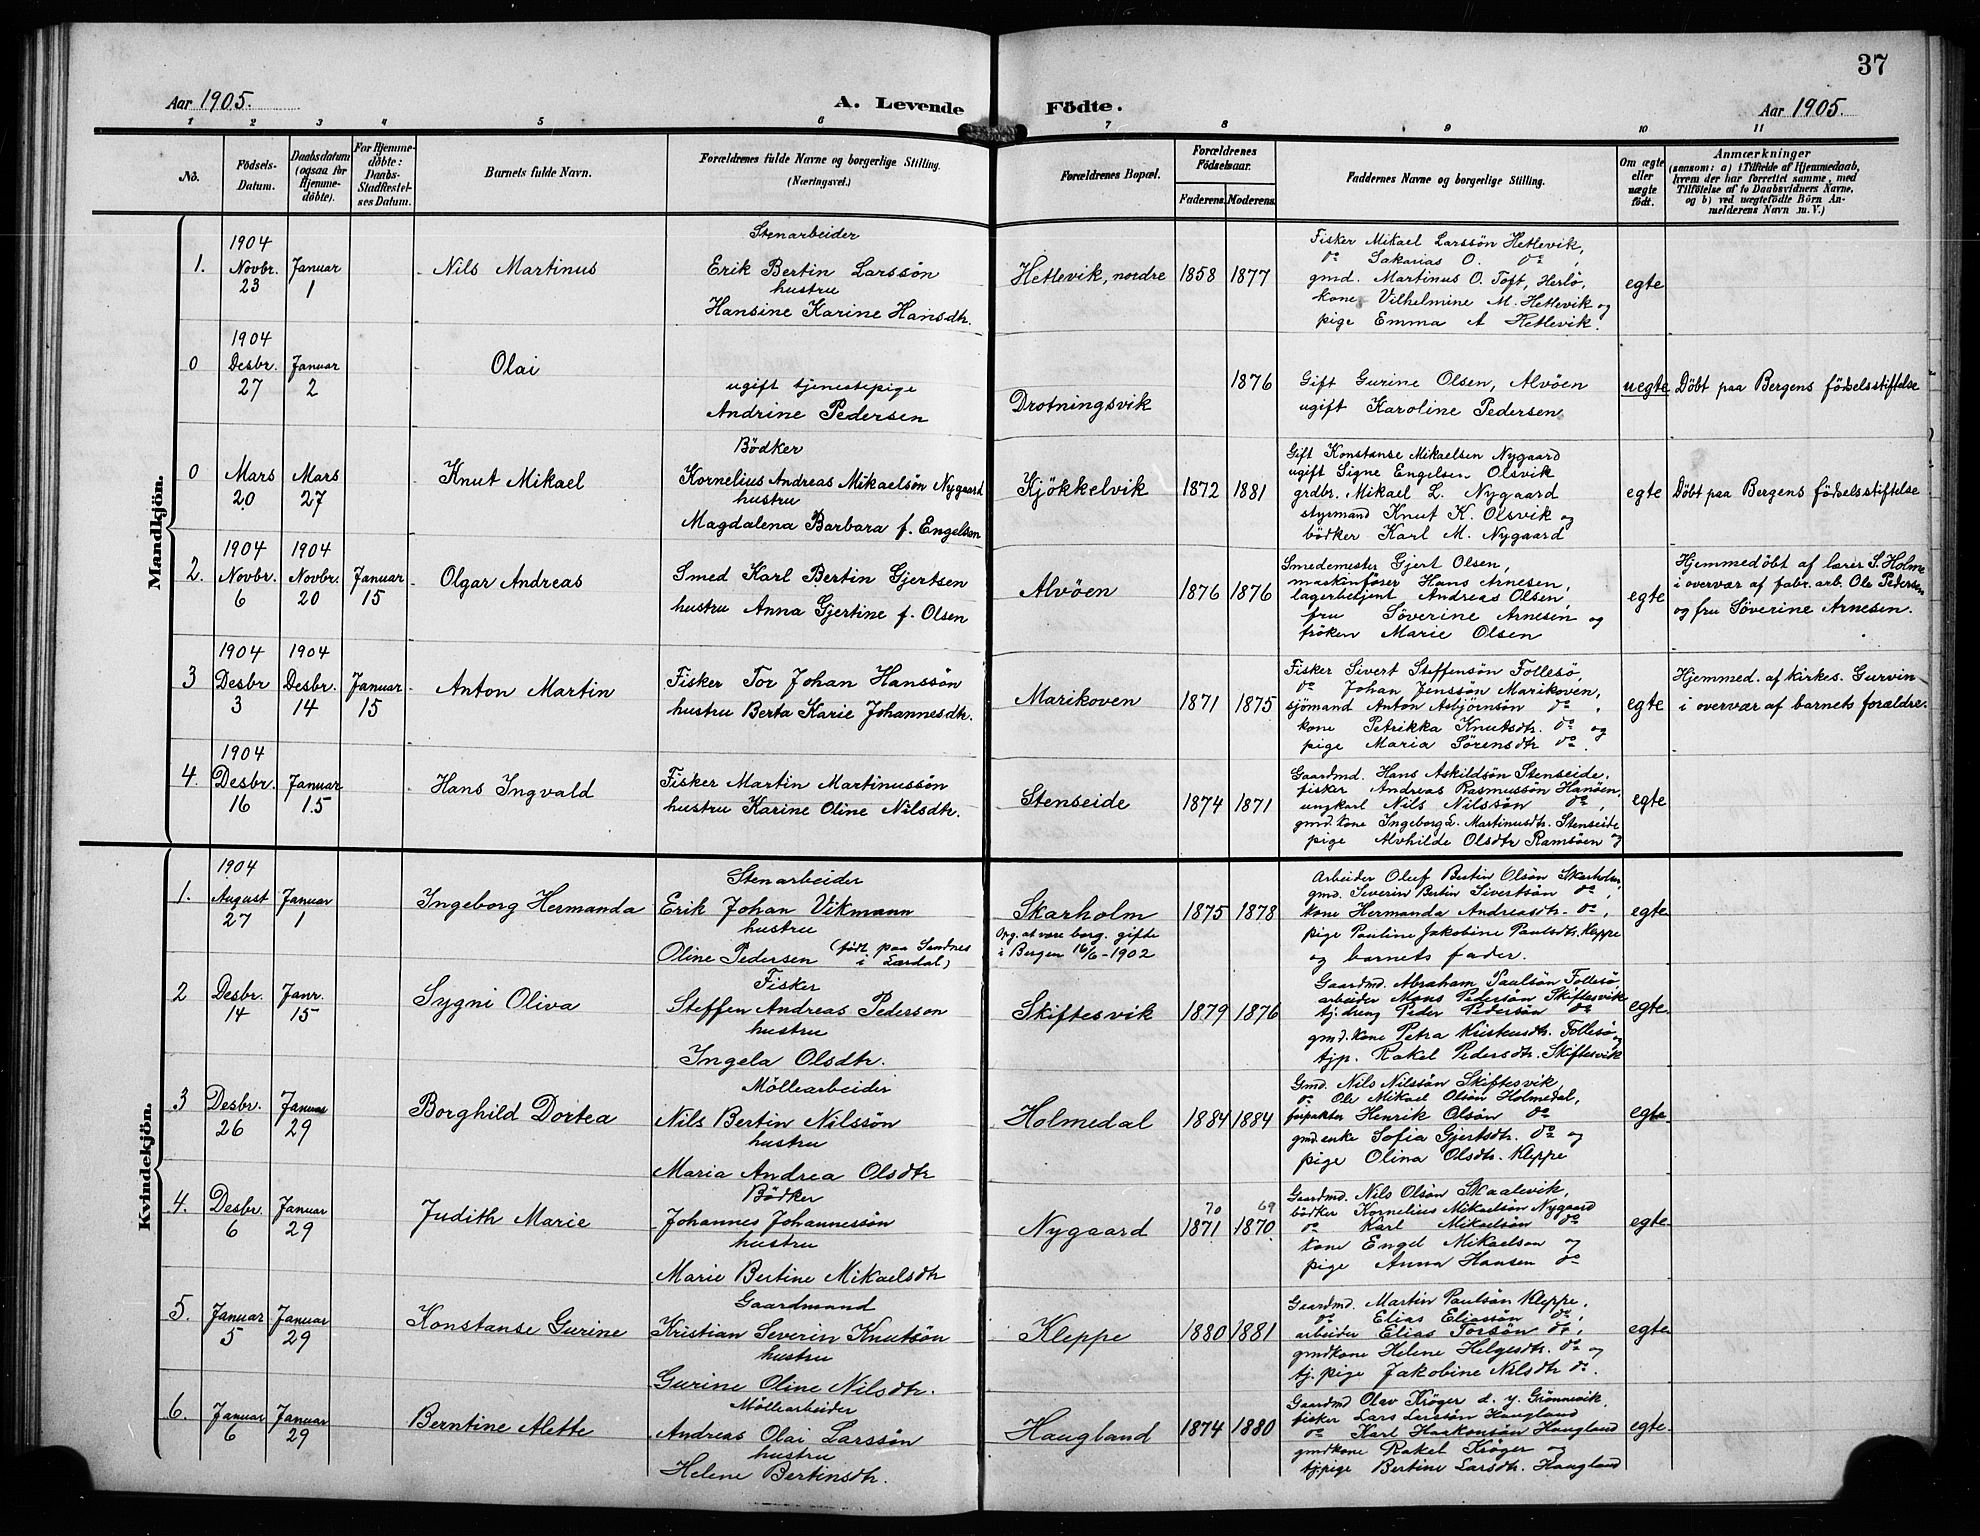 37
Aar 1905.
A. Levende Födte.
Aar 1905.
1 2 3 4 5 6 7 8 9 10 11
No.
Födsels-Datum.
Daabsdatum (ogsaa for Hjemmedöbte).
For Hjemmedöbte: Daabs-Stadfæstelses Datum.
Barnets fulde Navn.
Forældrenes fulde Navne og borgerlige Stilling.
(Næringsvei.)
Forældrenes Bopæl.
Forældrenes Födselsaar.
Faderens. Moderens.
Faddernes Navne og borgerlige Stilling.
Om ægte eller uægte födt.
Anmærkninger
(saasom: a) i Tilfælde af Hjemmedaab, hvem der har forrettet samme, med Tilföielse af to Daabsvidners Navne, og b) ved uægtefödte Börn Anmelderens Navn m. V.)
Mandkjön.
1. 1904 Novbr. 23 Januar 1
Nils Martinus
Stenarbeider
Erik Bertin Larssön
hustru
Hansine Karine Hansdtr.
Hetlevik, nordre 1858 1877
Fisker Mikael Larssön Hetlevik,
do Sakarias O. do,
gmd. Martinus O. Toft, Herlö,
kone Vilhelmine M. Hetlevik og
pige Emma A Hetlevik.
egte
0 1904 Desbr. 27 Januar 2
Olai
ugift tjenestepige
Andrine Pedersen
Drotningsvik 1876
Gift Gurine Olsen, Alvöen
ugift Karoline Pedersen
uegte
Döbt paa Bergens födselsstiftelse
0 Mars 20 Mars 27
Knut Mikael
Bödker
Kornelius Andreas Mikaelsön Nygaard
hustru
Magdalena Barbara f. Engelsen
Kjökkelvik 1872 1881
Gift Konstanse Mikaelsen Nygaard
ugift Signe Engelsen Olsvik
grdbr. Mikael L. Nygaard
styrmand Knut K. Olsvik og
bödker Karl M. Nygaard
egte
Döbt paa Bergens födselsstiftelse
2. 1904 Novbr. 6 1904 Novbr. 20 Januar 15
Olgar Andreas
Smed Karl Bertin Gjertsen
hustru Anna Gjertine f. Olsen
Alvöen 1876 1876
Smedemester Gjert Olsen,
maskinförer Hans Arnesen,
lagerbetjent Andreas Olsen,
fru Söverine Arnesen og
fröken Marie Olsen
egte
Hjemmedöbt af lærer S. Holme
i overvær af fabr. arb. Ole Pedersen
og fru Söverine Arnesen.
3 1904 Desbr 3 1904 Desbr. 14 Januar 15
Anton Martin
Fisker Tor Johan Hanssön
hustru Berta Karie Johannesdtr.
Marikoven 1871 1875
Fisker Sivert Steffensön Follesö
do Johan Jenssön Marikoven,
sjömand Anton Asbjörnsön do,
kone Petrikka Knutsdtr. do og
pige Maria Sörensdtr do.
egte
Hjemmed. af kirkes. Gurvin
i overvær af barnets forældre.
4. 1904 Desbr. 16 Januar 15
Hans Ingvald
Fisker Martin Martinussön
hustru Karine Oline Nilsdtr.
Stenseide 1874 1871
Gaardmd. Hans Askildsön Stenseide,
fisker Andreas Rasmussön Hanöen,
ungkarl Nils Nilssön do,
gmd. kone Ingeborg L. Martinusdtr. Stenseide
pige Alvhilde Olsdtr Ramsöen og
egte
Kvindekjön.
1. 1904 August 27 Januar 1
Ingeborg Hermanda
Stenarbeider
Erik Johan Vikmann
hustru
Oline Pedersen (födt paa Sandnes i Lærdal)
Skarholm 1875 1878
Opg. at være borg. gifte
i Bergen 16/6-1902
Arbeider Oluf Bertin Olsön Skarholm,
gmd. Severin Bertin Sivertsön do,
kone Hermanda Andreasdtr. do,
pige Pauline Jakobine Paulsdtr. Kleppe
og barnets fader.
egte
2 Desbr. 14 Janr. 15
Sygni Oliva
Fisker
Steffen Andreas Pederson
hustru
Ingela Olsdtr.
Skiftesvik 1879 1876
Gaardmd. Abraham Paulsön Follesö,
arbeider Mons Pedersön Skiftesvik
tj. dreng Peder Pedersön do
gmd. kone Petra Kristensdtr. Follesö og
tjp. Rakel Pedersdtr. Skiftesvik
egte.
3 Desbr. 26 Januar 29
Borghild Dortea
Möllearbeider
Nils Bertin Nilssön
hustru
Maria Andrea Olsdtr
Holmedal 1884 1884
Gmd. Nils Nilssön Skiftesvik,
do Ole Mikael Olsön Holmedal,
forpakter Henrik Olsön do
gmd. enke Sofia Gjertsdtr. do og
pige Olina Olsdtr. Kleppe
egte
4. Desbr. 6 Januar 29
Judith Marie
Bödker
Johannes Johannessön
hustru
Marie Bertine Mikaelsdtr
Nygaard 70 1871 69 1870.
Gaardmd. Nils Olsön Skaalevik,
bödker Kornelius Mikaelsön Nygaard
do Karl Mikaelsön do
kone Engel Mikaelson og
pige Anna Hansen do
egte
5. Januar 5 Januar 29
Konstanse Gurine
Gaardmand
Kristian Severin Knutsön
hustru
Gurine Oline Nilsdtr.
Kleppe 1880 1881
Gaardmd. Martin Paulsön Kleppe,
do Elias Eliassön do,
arbeider Elias Torsön do,
gmdkone Helene Helgesdtr. do og
tj. pige Jakobine Nilsdtr do.
egte
6. Januar 6 Januar 29
Berntine Alette
Möllearbeider
Andreas Olai Larssön
hustru
Helene Bertinsdtr.
Haugland 1874 1880
Gaardmd Olav Kröger d. y. Grönnevik,
fisker Lars Larssön Haugland
do Karl Haakonsön Haugland
gmdkone Rakel Kröger og
tj. pige Bertine Larsdtr. Haugland
egte.